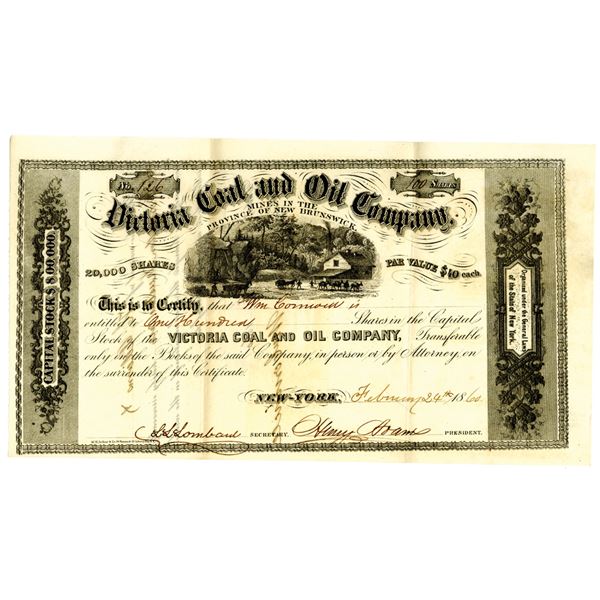 No. 126
100 Shares
Victoria Coal and Oil Company.
MINES IN THE
PROVINCE OF NEW BRUNSWICK
20,000 SHARES
PAR VALUE $40 each.
This is to Certify, that Wm is
entitled to One Hundred Shares in the Capital
Stock of the VICTORIA COAL AND OIL COMPANY, Transferable
only on the Books of the said Company, in person or by Attorney, on
the surrender of this Certificate.
NEW-YORK, February 24th 186
Lombard SECRETARY. Henry PRESIDENT.
CAPITAL STOCK $8,00,000.
Organized under the General Laws
of the State of New York.